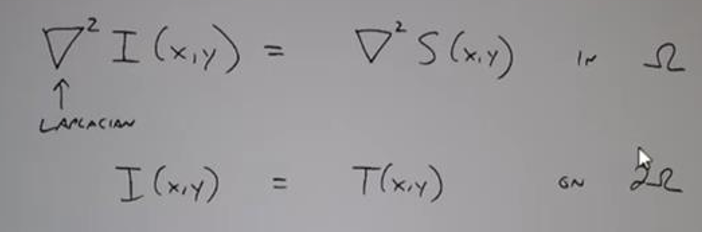 ∇² I(x,y) = ∇² S(x,y) IN Ω
↑
LAPLACIAN
I(x,y) = T(x,y) ON ∂Ω